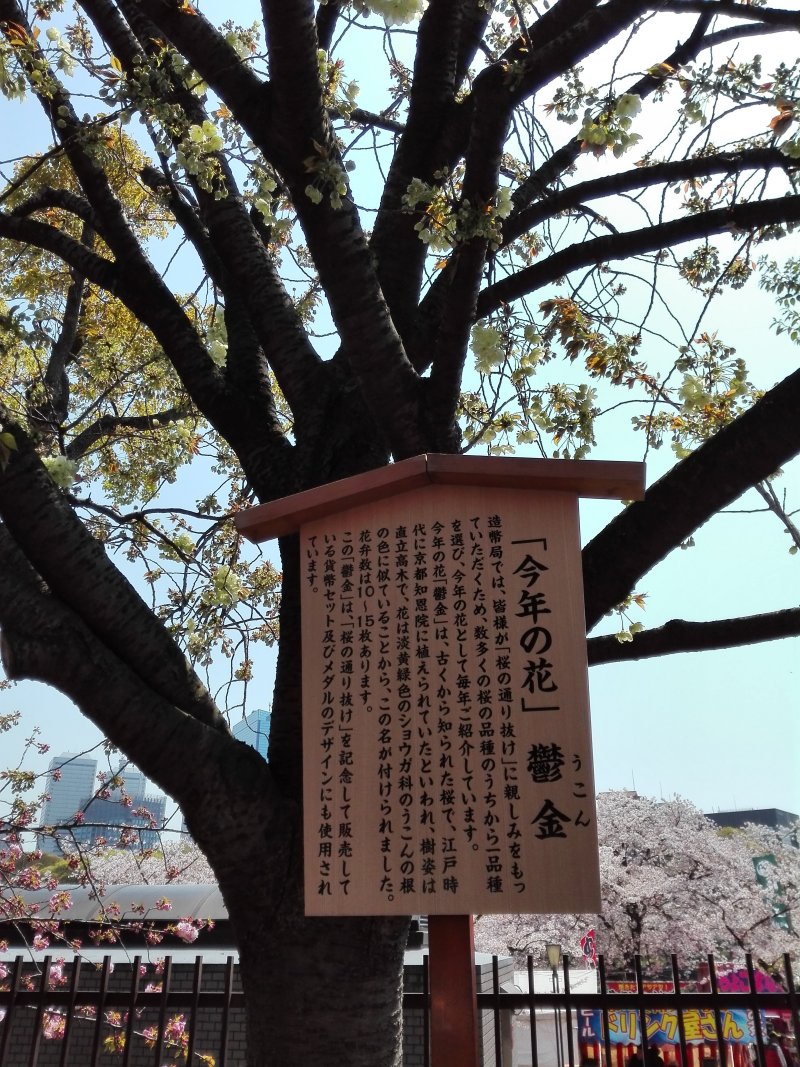 「今年の花」 鬱金
うこん
造幣局では、皆様が「桜の通り抜け」に親しみをもっ
ていただくため、数多くの桜の品種のうちから一品種
を選び、今年の花として毎年ご紹介しています。
今年の花「鬱金」は、古くから知られた桜で、江戸時
代に京都知恩院に植えられていたといわれ、樹姿は
直立高木で、花は淡黄緑色のショウガ科のうこんの根
の色に似ていることから、この名が付けられました。
花弁数は10～15枚あります。
この「鬱金」は、「桜の通り抜け」を記念して販売して
いる貨幣セット及びメダルのデザインにも使用され
ています。
ドリンク屋さん